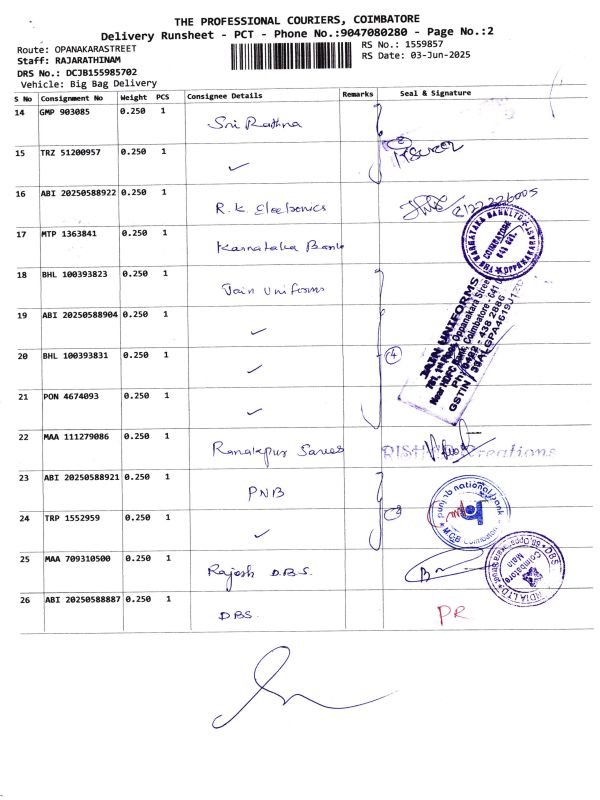 THE PROFESSIONAL COURIERS, COIMBATORE
Delivery Runsheet - PCT - Phone No.:9047080280 - Page No.:2
Route: OPANAKARASTREET
RS No.: 1559857
Staff: RAJARATHINAM
RS Date: 03-Jun-2025
DRS No.: DCJB155985702
Vehicle: Big Bag Delivery
S No Consignment No Weight PCS Consignee Details Remarks Seal & Signature
14 GMP 903085 0.250 1 Sri Rathna
15 TRZ 51200957 0.250 1 ✓
16 ABI 20250588922 0.250 1 R.K. Electronics
17 MTP 1363841 0.250 1 Karnataka Bank
18 BHL 100393823 0.250 1 Jain Uniforms
19 ABI 20250588904 0.250 1 ✓
20 BHL 100393831 0.250 1 ✓ 4
21 PON 4674093 0.250 1 ✓
JAIN UNIFORMS
22 MAA 111279086 0.250 1 Ranakpur Sarees Creations
23 ABI 20250588921 0.250 1 PNB
punjab national bank
24 TRP 1552959 0.250 1 ✓
25 MAA 709310500 0.250 1 Rajesh D.B.S.
Coimbatore
Main
26 ABI 20250588887 0.250 1 DBS. PR